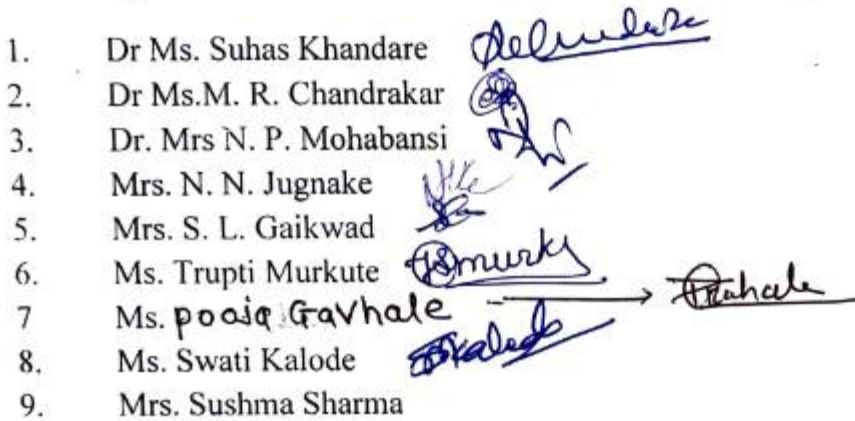 1. Dr Ms. Suhas Khandare
2. Dr Ms.M. R. Chandrakar
3. Dr. Mrs N. P. Mohabansi
4. Mrs. N. N. Jugnake
5. Mrs. S. L. Gaikwad
6. Ms. Trupti Murkute
7 Ms. pooja Gavhale
8. Ms. Swati Kalode Skalode
9. Mrs. Sushma Sharma